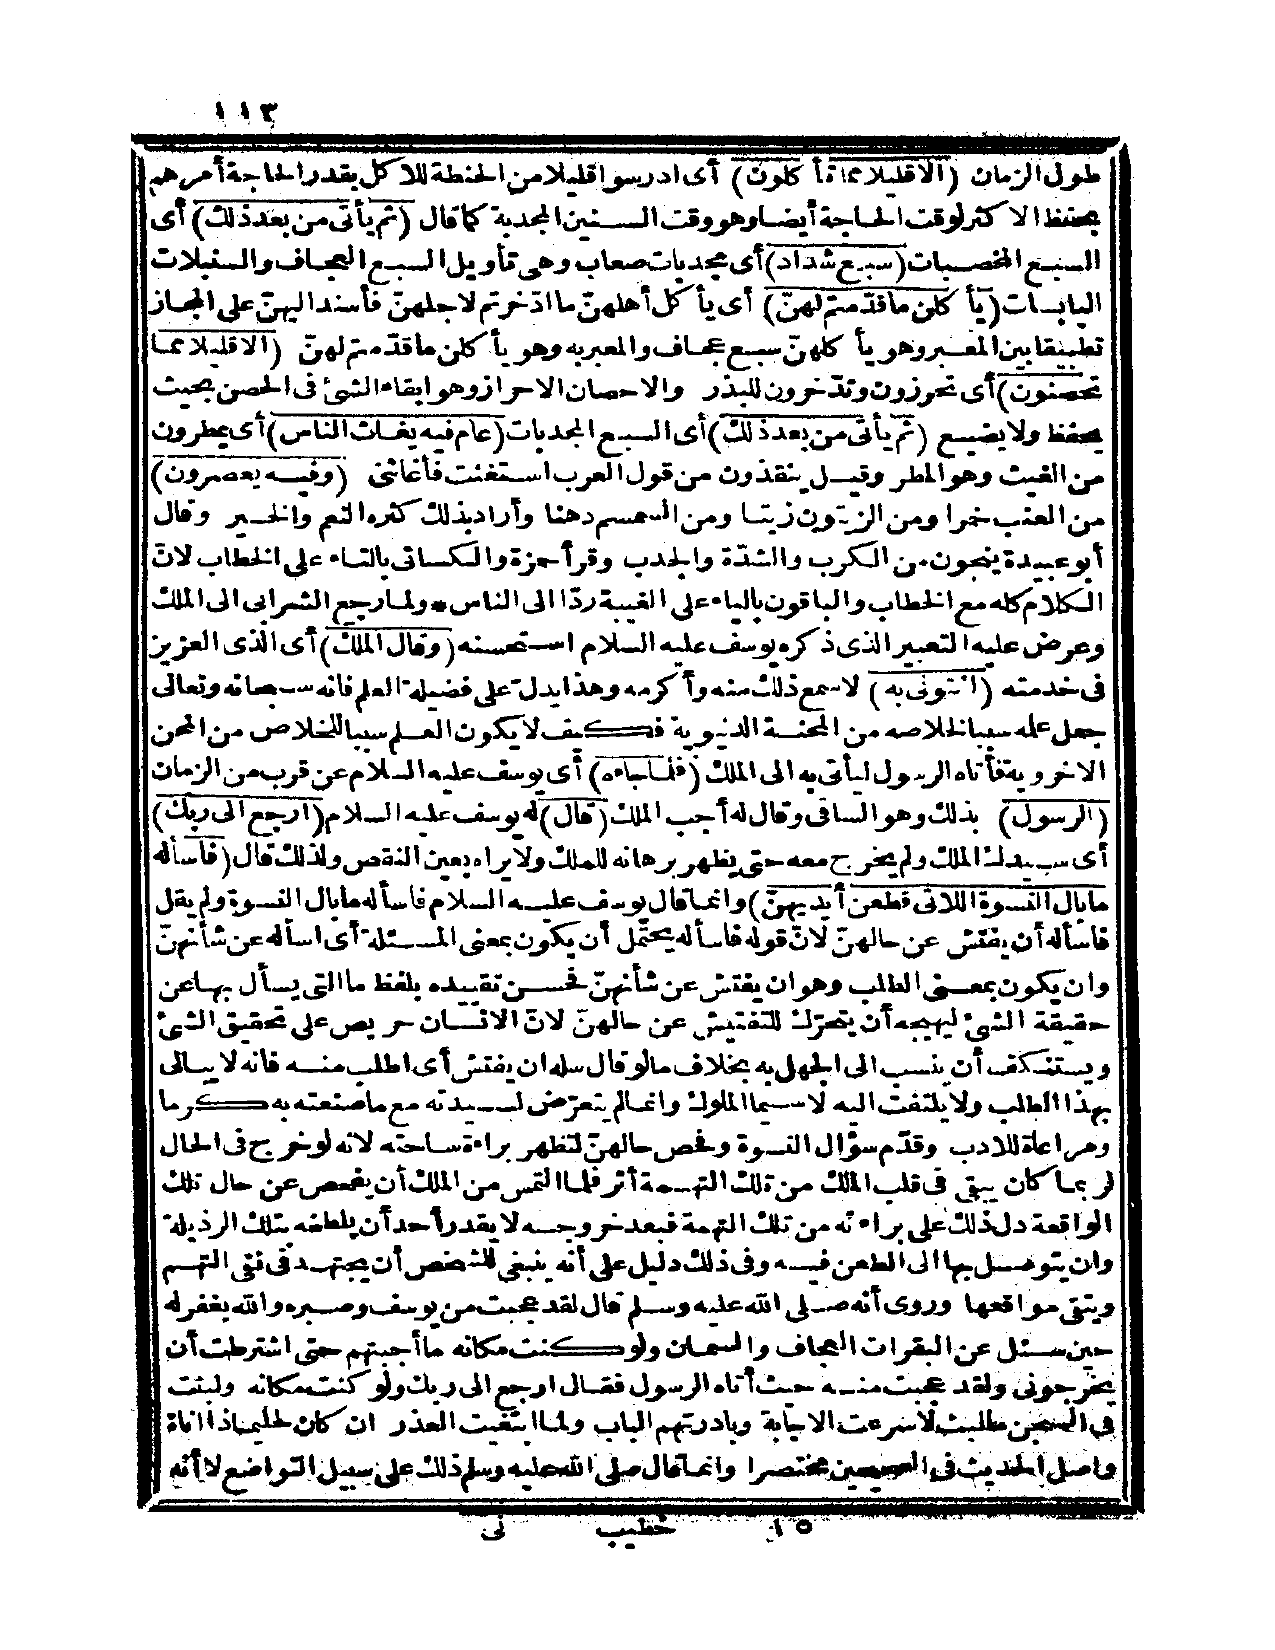 ١١٣
طول الزمان (الا قليلا مما تأكلون) أى ادرسوا قليلا من الحنطة للاكل بقدر الحاجة أمرهم
بحفظ الاكثر لوقت الحاجة أيضا وهو وقت السنين المجدبة كما قال (ثم يأتى من بعد ذلك) أى
السبع المخصبات (سبع شداد) أى مجدبات صعاب وهى تأويل السبع العجاف والسنبلات
اليابسات (يأكلن ما قدّمتم لهنّ) أى يأكل أهلهنّ ما ادّخرتم لاجلهنّ فأسند اليهنّ على المجاز
تطبيقا بين المعبر وهو يأكلهنّ سبع عجاف والمعبر به وهو يأكلن ما قدّمتم لهنّ (الا قليلا مما
تحصنون) أى تحرزون وتدّخرون للبذر والاحصان الاحراز وهو ابقاء الشئ فى الحصن بحيث
يحفظ ولا يضيع (ثم يأتى من بعد ذلك) أى السبع المجدبات (عام فيه يغاث الناس) أى يمطرون
من الغيث وهو المطر وقيل ينقذون من قول العرب استغثت فأغاثنى (وفيه يعصرون)
من العنب خمرا ومن الزيتون زيتا ومن السمسم دهنا وأراد بذلك كثرة النعم والخير وقال
أبو عبيدة ينجون من الكرب والشدّة والجدب وقرأ حمزة والكسائى بالتاء على الخطاب لانّ
الكلام كله مع الخطاب والباقون بالياء على الغيبة ردّا الى الناس * ولما رجع الشرابى الى الملك
وعرض عليه التعبير الذى ذكره يوسف عليه السلام استحسنه (وقال الملك) أى الذى العزيز
فى خدمته (ائتونى به) لاسمع ذلك منه وأكرمه وهذا يدل على فضيلة العلم فانه سبحانه وتعالى
جعل علمه سببا لخلاصه من المحنة الدنيوية فكيف لا يكون العلم سببا للخلاص من المحن
الاخروية فأتاه الرسول ليأتى به الى الملك (فلما جاءه) أى يوسف عليه السلام عن قرب من الزمان
(الرسول) بذلك وهو الساقى وقال له أجب الملك (قال) له يوسف عليه السلام (ارجع الى ربك)
أى سيدك الملك ولم يخرج معه حتى يظهر برهانه للملك ولا يراه بعين النقص ولذلك قال (فاسأله
ما بال النسوة اللاتى قطعن أيديهنّ) وانما قال يوسف عليه السلام فاسأله ما بال النسوة ولم يقل
فاسأله أن يفتش عن حالهنّ لانّ قوله فاسأله يحتمل أن يكون بمعنى المسئلة أى اسأله عن شأنهنّ
وان يكون بمعنى الطلب وهو ان يفتش عن شأنهنّ فحسن تقييده بلفظ ما التى يسأل بها عن
حقيقة الشئ ليهيجه أن يتحرّك للتفتيش عن حالهنّ لانّ الانسان حريص على تحقيق الشئ
ويستنكف أن ينسب الى الجهل به بخلاف ما لو قال سله ان يفتش أى اطلب منه فانه لا يبالى
بهذا الطلب ولا يلتفت اليه لا سيما الملوك وانما لم يتعرّض لسيدته مع ما صنعته به كرما
ومراعاة للادب وقدّم سؤال النسوة وفحص حالهنّ لتظهر براءة ساحته لانه لو خرج فى الحال
لربما كان يبقى فى قلب الملك من تلك التهمة أثر فلما التمس من الملك أن يفحص عن حال تلك
الواقعة دل ذلك على براءته من تلك التهمة فبعد خروجه لا يقدر أحد أن يلطخه بتلك الرذيلة
وان يتوصل بها الى الطعن فيه وفى ذلك دليل على أنه ينبغى للشخص أن يجتهد فى نفى التهم
ويتقى مواقعها وروى أنه صلى الله عليه وسلم قال لقد عجبت من يوسف وصبره والله يغفر له
حين سئل عن البقرات العجاف والسمان ولو كنت مكانه ما أجبتهم حتى اشترطت أن
يخرجونى ولقد عجبت منه حيث أتاه الرسول فقال ارجع الى ربك ولو كنت مكانه ولبثت
فى السجن ما لبث لاسرعت الاجابة وبادرتهم الباب ولما ابتغيت العذر ان كان لحليما ذا اناة
واصل الحديث فى الصحيحين مختصرا وانما قال صلى الله عليه وسلم ذلك على سبيل التواضع لا أنه
١٥ خطيب نى